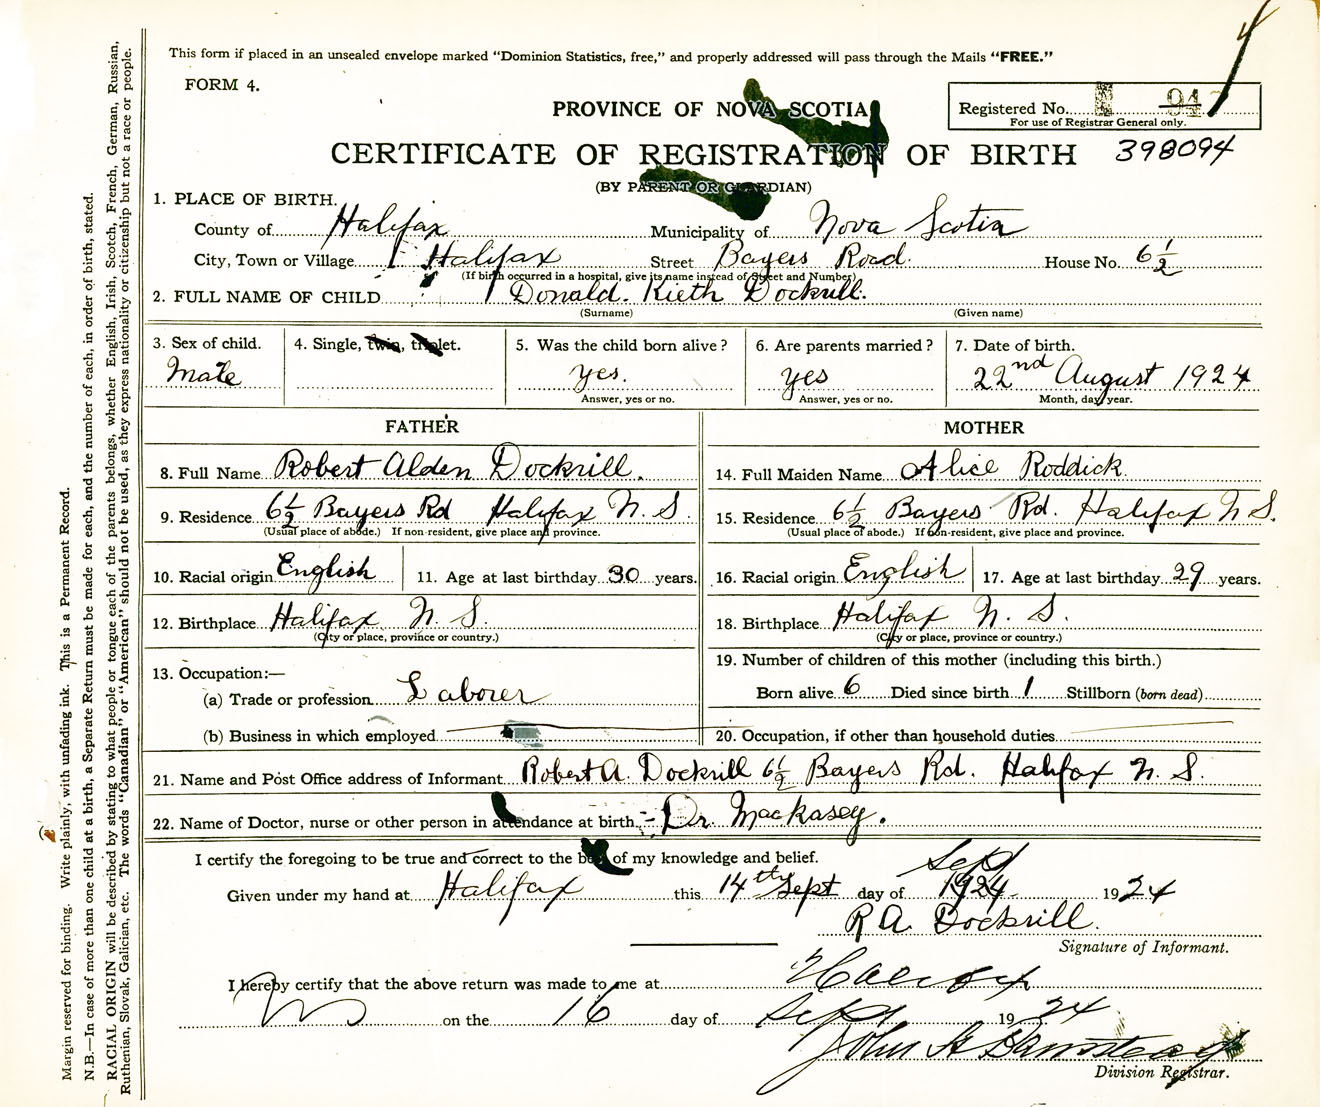 This form if placed in an unsealed envelope marked “Dominion Statistics, free,” and properly addressed will pass through the Mails “FREE.”
FORM 4.
PROVINCE OF NOVA SCOTIA
Registered No.
For use of Registrar General only.
CERTIFICATE OF REGISTRATION OF BIRTH 398094
(BY PARENT OR GUARDIAN)
1. PLACE OF BIRTH.
County of Halifax Municipality of Nova Scotia
City, Town or Village Halifax Street Bayers Road. House No. 6½
(If birth occurred in a hospital, give its name instead of Street and Number)
2. FULL NAME OF CHILD Donald. Kieth Dockrill.
(Surname) (Given name)
3. Sex of child. 4. Single, twin, triplet. 5. Was the child born alive? 6. Are parents married? 7. Date of birth.
Male yes. yes 22nd August 1924
Answer, yes or no. Answer, yes or no. Month, day, year.
FATHER MOTHER
8. Full Name Robert Alden Dockrill. 14. Full Maiden Name Alice Roddick.
9. Residence 6½ Bayers Rd Halifax N. S. 15. Residence 6½ Bayers Rd. Halifax N S.
(Usual place of abode.) If non-resident, give place and province. (Usual place of abode.) If non-resident, give place and province.
10. Racial origin English 11. Age at last birthday 30 years. 16. Racial origin English 17. Age at last birthday 29 years.
12. Birthplace Halifax N. S. 18. Birthplace Halifax N. S.
(City or place, province or country.) (City or place, province or country.)
13. Occupation:— 19. Number of children of this mother (including this birth.)
(a) Trade or profession Laborer Born alive 6 Died since birth 1 Stillborn (born dead)
(b) Business in which employed 20. Occupation, if other than household duties
21. Name and Post Office address of Informant Robert A. Dockrill 6½ Bayers Rd. Halifax N. S.
22. Name of Doctor, nurse or other person in attendance at birth Dr. Mackasey.
I certify the foregoing to be true and correct to the best of my knowledge and belief.
Sept
Given under my hand at Halifax this 14th Sept day of 1924 1924
R A. Dockrill.
Signature of Informant.
I hereby certify that the above return was made to me at Halifax
on the 16 day of Sept 1924
John
Division Registrar.
Margin reserved for binding. Write plainly, with unfading ink. This is a Permanent Record.
N.B.—In case of more than one child at a birth, a Separate Return must be made for each, and the number of each, in order of birth, stated.
RACIAL ORIGIN will be described by stating to what people or tongue each of the parents belongs, whether English, Irish, Scotch, French, German, Russian,
Ruthenian, Slovak, Galician, etc. The words “Canadian” or “American” should not be used, as they express nationality or citizenship but not a race or people.